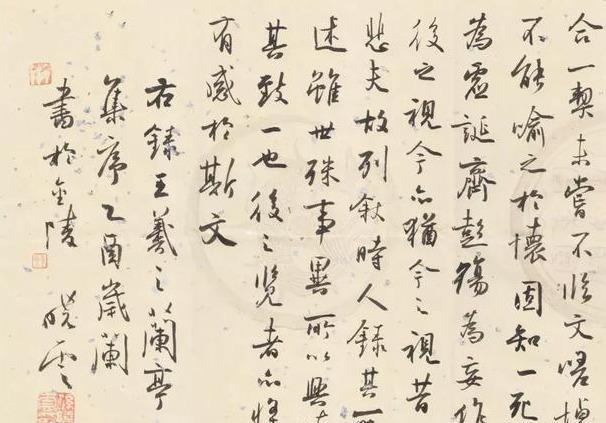 合一契未嘗不臨文嗟悼
不能喻之於懷固知一死
為虛誕齊彭殤為妄作
後之視今亦猶今之視昔
悲夫故列敘時人錄其
述雖世殊事異所以興
其致一也後之覽者亦將
有感於斯文
右錄王羲之蘭亭
集序乙酉歲蘭
書於金陵 曉雲